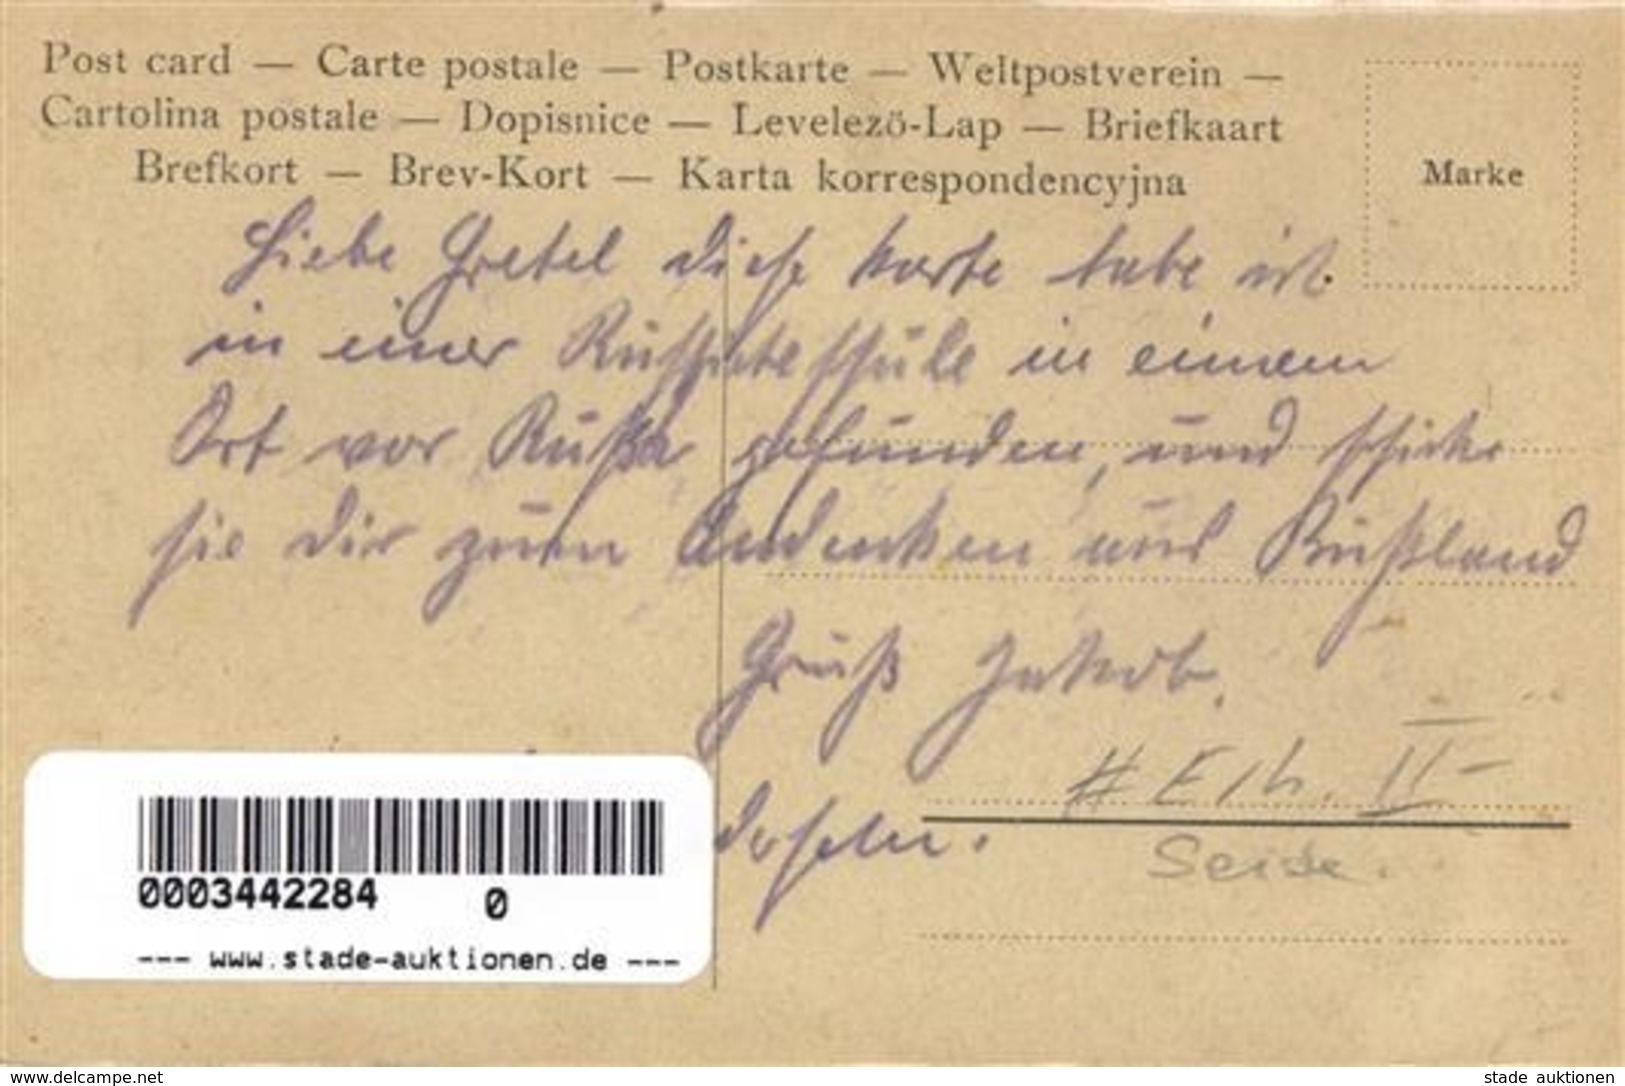 Post card — Carte postale — Postkarte — Weltpostverein —
Cartolina postale — Dopisnice — Levelező-Lap — Briefkaart
Brefkort — Brev-Kort — Karta korrespondencyjna
Marke
Liebe Gretel diese Karte habe ich
in einer in einem
Ort vor gefunden, und schicke
sie dir zum Andenken aus Rußland
Gruß Jakob.
# E/h. II-
Seide.
0003442284 0
--- www.stade-auktionen.de ---
www.delcampe.net
stade auktionen